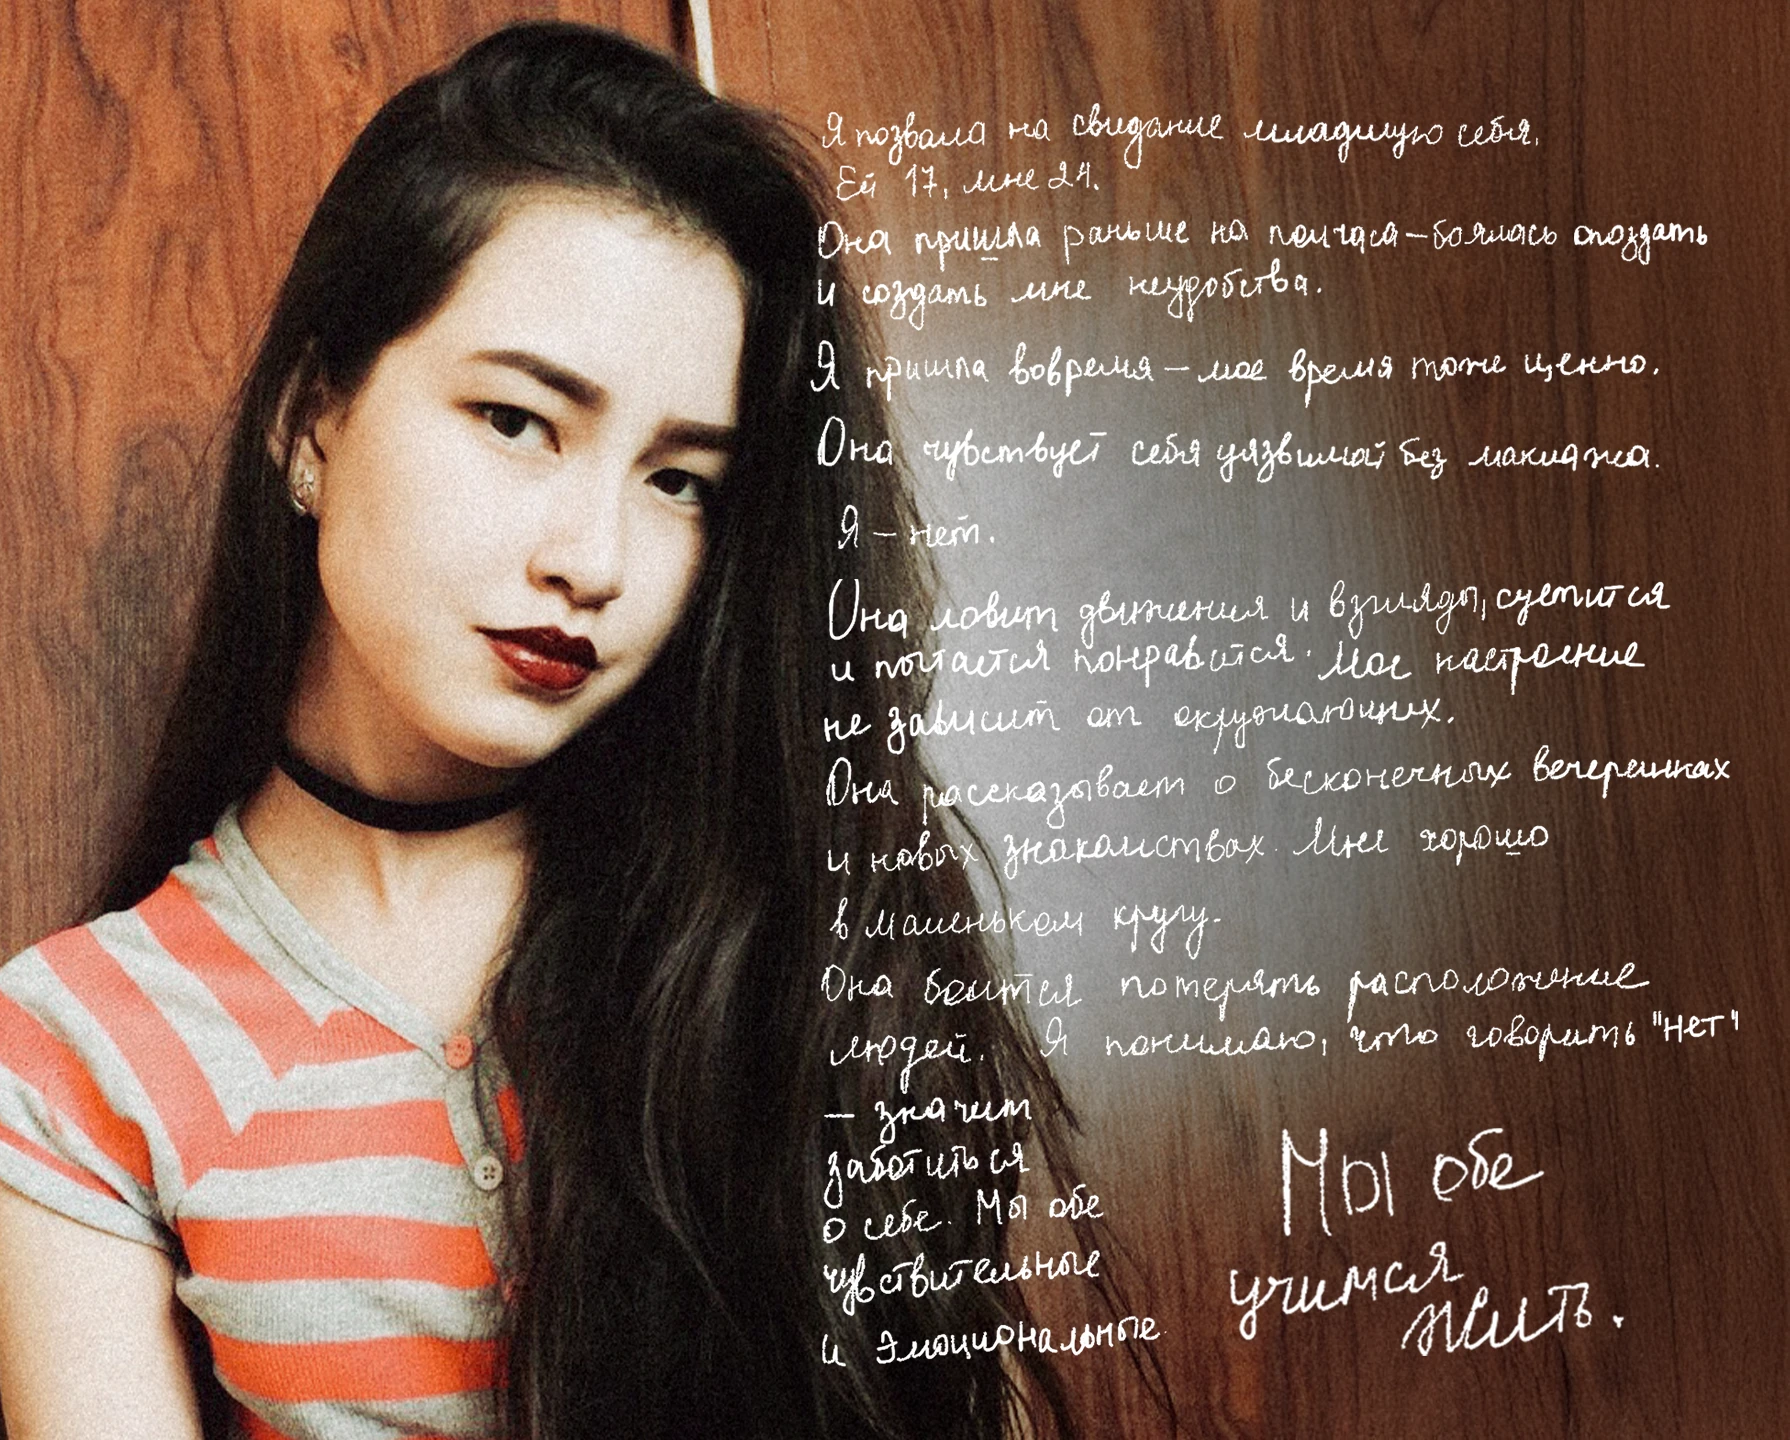 Я позвала на свидание младшую себя.
Ей 17, мне 24.
Она пришла раньше на полчаса – боялась опоздать
и создать мне неудобства.
Я пришла вовремя – мое время тоже ценно.
Она чувствует себя уязвимой без макияжа.
Я – нет.
Она ловит движения и взгляды, суетится
и пытается понравится. Мое настроение
не зависит от окружающих.
Она рассказывает о бесконечных вечеринках
и новых знакомствах. Мне хорошо
в маленьком кругу.
Она боится потерять расположение
людей. Я понимаю, что говорить "нет"
– значит
заботиться
о себе. Мы обе
чувствительные
и эмоциональные.
Мы обе
учимся
жить.